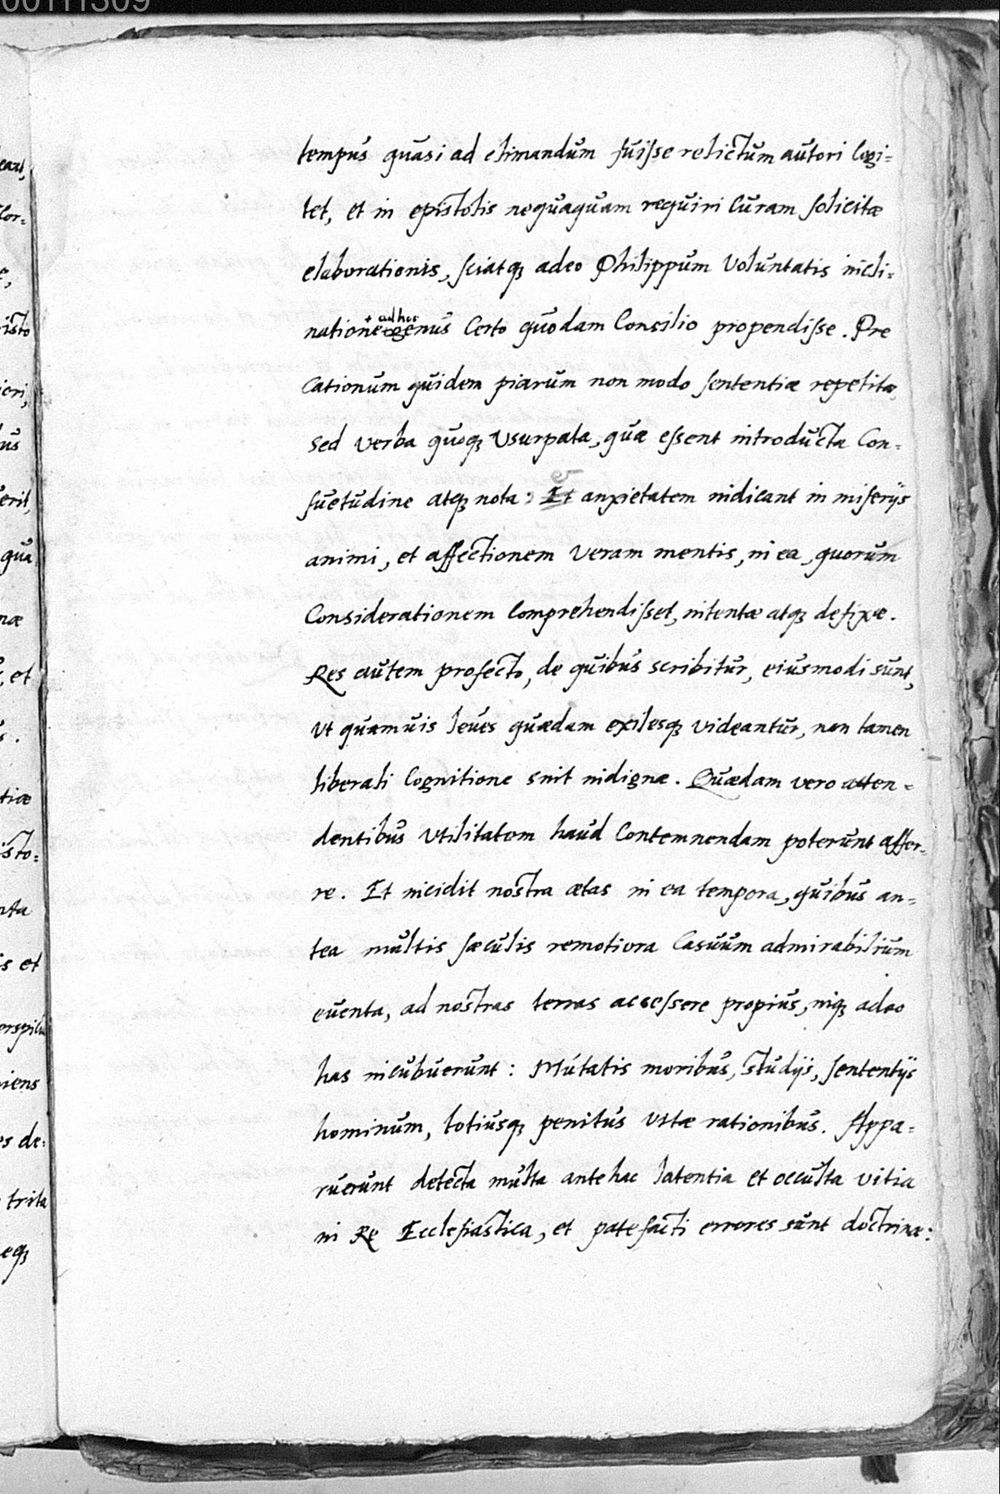 00111309
tempus quasi ad elimandum fuisse relictum autori cogi-
tet, et in epistolis nequaquam requiri curam solicitæ
elaborationis, sciatq; adeo Philippum voluntatis incli-
natione ad hoc genus certo quodam consilio propendisse. Pre
cationum quidem piarum non modo sententiæ repetitæ,
sed verba quoq; usurpata, quæ essent introducta con-
suetudine atq; nota: Et anxietatem indicant in miserijs
animi, et affectionem veram mentis, in ea, quorum
considerationem comprehendisset, intentæ atq; defixæ.
Res autem profecto, de quibus scribitur, eiusmodi sunt,
ut quamuis leues quædam exilesq; videantur, non tamen
liberali cognitione sint indignæ. Quædam vero atten-
dentibus utilitatem haud contemnendam poterunt affer-
re. Et incidit nostra ætas in ea tempora, quibus an-
tea multis sæculis remotiora casuum admirabilium
euenta, ad nostras terras accessere propius, inq; adeo
has incubuerunt: Mutatis moribus, studijs, sententijs
hominum, totiusq; penitus vitæ rationibus. Appa-
ruerunt detecta multa antehac latentia et occulta vitia
in Re Ecclesiastica, et patefacti errores sunt doctrinæ:
eaul,
cor-
e,
isto
ieri,
bus
erit,
qua
næ
, et
s.
tiæ
isto:
nta
is et
erspicu
iens
es de:
trita
eq;